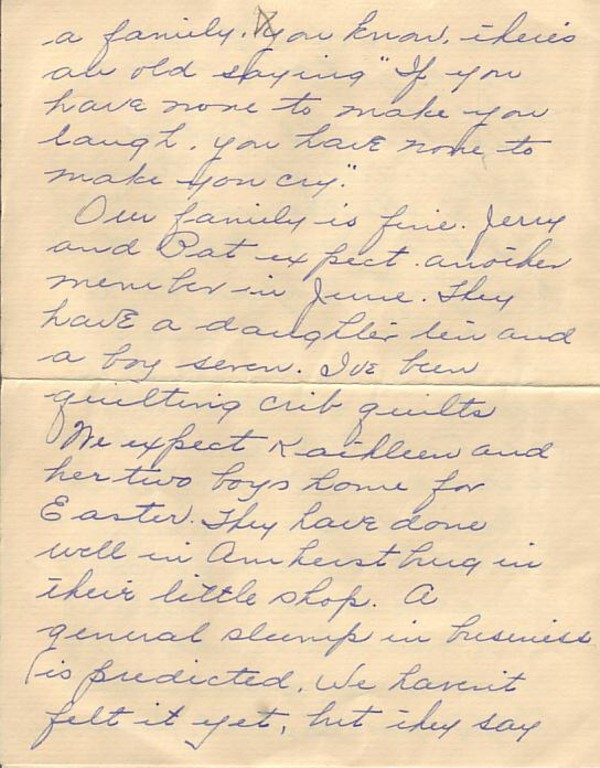 a family. You know, there's
an old saying "If you
have none to make you
laugh, you have none to
make you cry."
Our family is fine. Jerry
and Pat expect another
member in June. They
have a daughter ten and
a boy seven. I've been
quilting crib quilts
We expect Kaithleen and
her two boys home for
Easter. They have done
well in Amherstburg in
their little shop. A
general slump in business
is predicted. We haven't
felt it yet, but they say